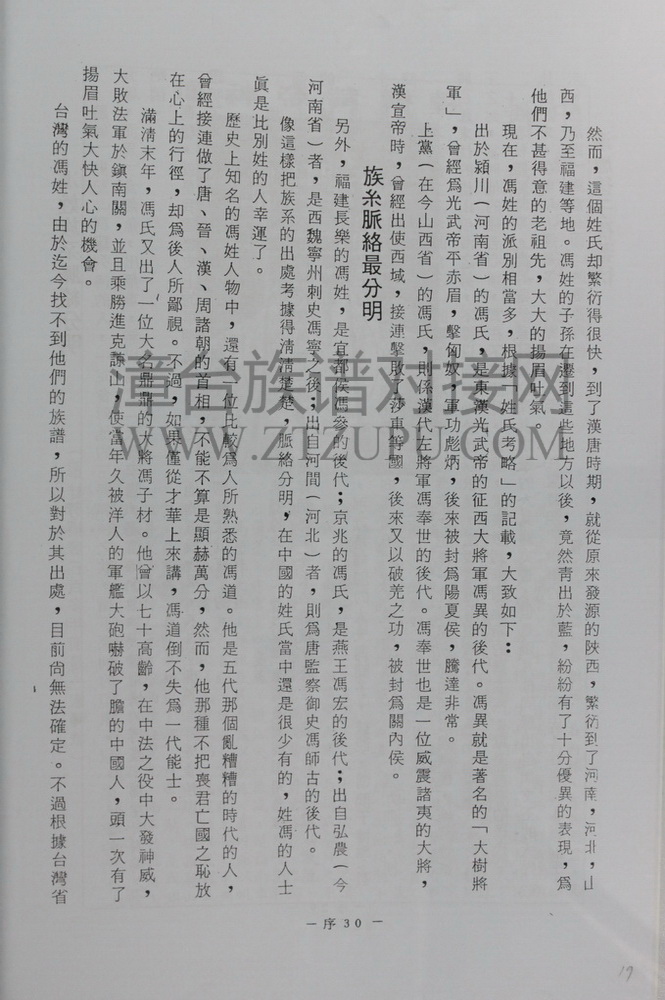 然而，這個姓氏却繁衍得很快，到了漢唐時期，就從原來發源的陝西，繁衍到了河南，河北，山
西，乃至福建等地。馮姓的子孫在遷到這些地方以後，竟然青出於藍，紛紛有了十分優異的表現，爲
他們不甚得意的老祖先，大大的揚眉吐氣。
現在，馮姓的派別相當多，根據「姓氏考略」的記載，大致如下：
出於潁川（河南省）的馮氏，是東漢光武帝的征西大將軍馮異的後代。馮異就是著名的「大樹將
軍」，曾經爲光武帝平赤眉，擊匈奴，軍功彪炳，後來被封爲陽夏侯，騰達非常。
上黨（在今山西省）的馮氏，則係漢代左將軍馮奉世的後代。馮奉世也是一位威震諸夷的大將，
漢宣帝時，曾經出使西域，接連擊敗了莎車等國，後來又以破羌之功，被封爲關內侯。
族糸脈絡最分明
另外，福建長樂的馮姓，是宜都侯馮參的後代；京兆的馮氏，是燕王馮宏的後代；出自弘農（今
河南省）者，是西魏寧州刺史馮寧之後；出自河間（河北）者，則爲唐監察御史馮師古的後代。
像這樣把族系的出處考據得清清楚楚，脈絡分明，在中國的姓氏當中還是很少有的，姓馮的人士
眞是比別姓的人幸運了。
歷史上知名的馮姓人物中，還有一位比較爲人所熟悉的馮道。他是五代那個亂糟糟的時代的人，
曾經接連做了唐、晉、漢、周諸朝的首相，不能不算是顯赫萬分，然而，他那種不把喪君亡國之恥放
在心上的行徑，却爲後人所鄙視。不過，如果僅從才華上來講，馮道倒不失爲一代能士。
滿清末年，馮氏又出了一位大名鼎鼎的大將馮子材。他曾以七十高齡，在中法之役中大發神威，
大敗法軍於鎮南關，並且乘勝進克諒山，使當年久被洋人的軍艦大砲嚇破了膽的中國人，頭一次有了
揚眉吐氣大快人心的機會。
台灣的馮姓，由於迄今找不到他們的族譜，所以對於其出處，目前尚無法確定。不過根據台灣省
— 序 30 —
19
漳台族谱对接网
WWW.ZTZUPU.COM